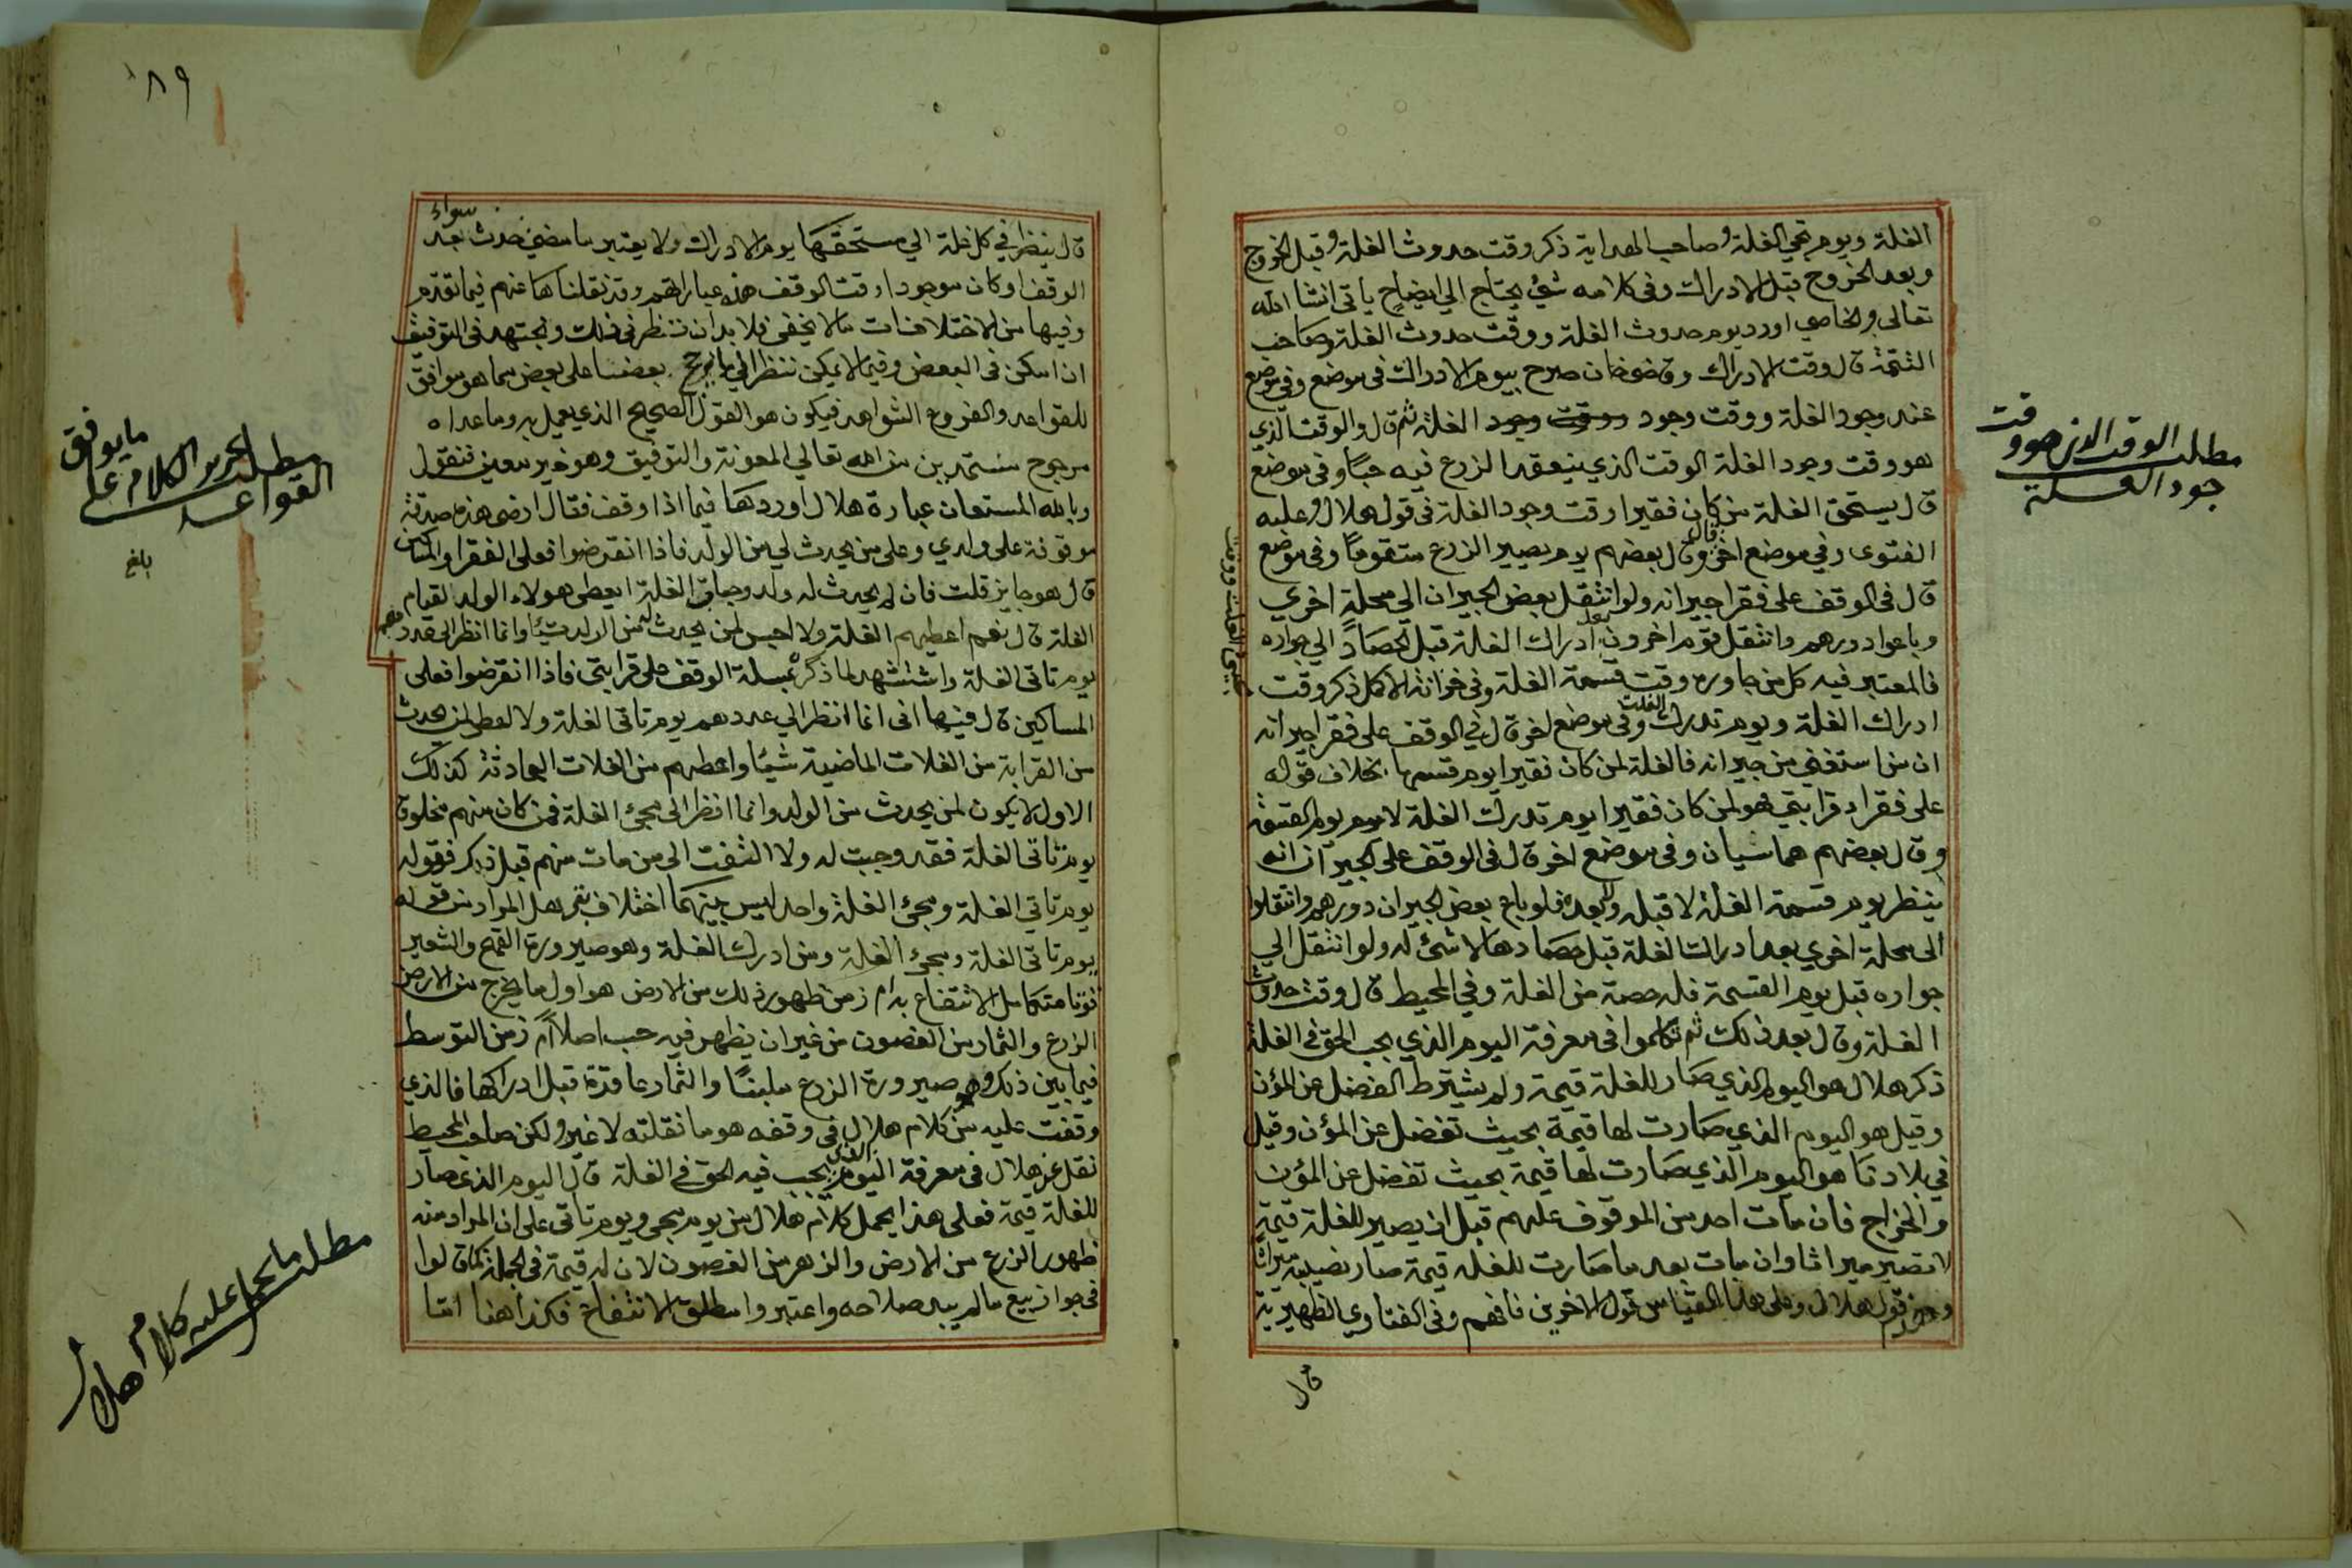 الغلة ويوم تجي الغلة وصاحب الهداية ذكر وقت حدوث الغلة وقبل الخروج
وبعد الخروج قبل الادراك وفي كلامه شئ يحتاج الي ايضاح ياتي انشا الله
تعالى والخاصي اورد يوم حدوث الغلة ووقت حدوث الغلة وصاحب
التتمة قال وقت الادراك وقاضي خان صرح بيوم الادراك في موضع وفي موضع
عند وجود الغلة ووقت وجود ووقت وجود الغلة ثم قال والوقت الذي
هو وقت وجود الغلة الوقت الذي ينعقد الزرع فيه حبًا وفي موضع
قال يستحق الغلة من كان فقيرا وقت وجود الغلة في قول هلال وعليه
الفتوى وفي موضع اخر قال وقال بعضهم يوم يصير الزرع متقومًا وفي موضع
قال في الوقف على فقرا جيرانه ولو انتقل بعض الجيران الي محلة اخري
وباعوا دورهم وانتقل قوم اخرون بعد ادراك الغلة قبل الحصاد الي جواره
فالمعتبر فيه كل من جاوره وقت قسمة الغلة وفي خزانة الاكمل ذكر وقت
ادراك الغلة ويوم تدرك الغلة وفي موضع اخر قال في الوقف على فقرا جيرانه
ان من استغنى من جيرانه فالغلة لمن كان فقيرا يوم قسمها بخلاف قوله
على فقراء قرابتي فهو لمن كان فقيرا يوم تدرك الغلة لا يوم القسمة
وقال بعضهم هما سيان وفي موضع اخر قال في الوقف على الجيران انه
ينظر يوم قسمة الغلة لا قبله ولا بعده فلو باع بعض الجيران دورهم وانتقلوا
الى محلة اخري بعد ادراك الغلة قبل حصادها لا شئ له ولو انتقل الي
جواره قبل يوم القسمة فله حصة من الغلة وفي المحيط قال وقت حدوث
الغلة وقال بعد ذلك ثم تكلموا في معرفة اليوم الذي يجب الحق في الغلة
ذكر هلال هو اليوم الذي صار للغلة قيمة ولم يشترط الفضل عن المؤن
وقيل هو اليوم الذي صارت لها قيمة بحيث تفضل عن المؤن وقيل
في بلادنا هو اليوم الذي صارت لها قيمة بحيث تفضل عن المؤن
والخراج فان مات احد من الموقوف عليهم قبل ان يصير للغلة قيمة
لا تصير ميراثا وان مات بعد ما صارت للغلة قيمة صار نصيبه ميراثا
قول هلال وعلى هذا القياس قول الاخرين فافهم وفي الفتاوي الظهيرية
قال
مطلب الوقت الذي هو وقت
وجود الغلة
١٨٩
قال ينظر في كل غلة الي مستحقها يوم الادراك ولا يعتبر ما مضي حدث بعد سواء
الوقف او كان موجودا وقت الوقف هذه عباراتهم وقد نقلناها عنهم فيما تقدم
وفيها من الاختلافات ما لا يخفى فلا بد ان ننظر في ذلك ونجتهد في التوفيق
ان امكن في البعض وفيما لا يمكن ننظر الي ما يرجح بعضنا على بعض بما هو موافق
للقواعد والفروع الشواهد فيكون هو القول الصحيح الذي يعمل به وما عداه
مرجوح مستمدين من الله تعالي المعونة والتوفيق وهو خير معين فنقول
وبالله المستعان عبارة هلال اوردها فيما اذا وقف فقال ارضي هذه صدقة
موقوفة على ولدي وعلى من يحدث لي من الولد فاذا انقرضوا فعلى الفقرا والمساكين
قال هو جايز قلت فان لم يحدث له ولد وجات الغلة ايعطي هولاء الولد القيام
الغلة قال نعم اعطيهم الغلة ولا احبس لمن يحدث له من الولد شيئا وانما انظر الى عددهم
يوم تاتي الغلة واستشهد لما ذكره بمسلة الوقف على قرابتي فاذا انقرضوا فعلى
المساكين قال فيها اني انما انظر الي عددهم يوم تاتي الغلة ولا اعطي لمن يحدث
من القرابة من الغلات الماضية شيئا واعطيهم من الغلات الحادثة كذلك
الاول لا يكون لمن يحدث من الولد وانما انظر الى مجئ الغلة فمن كان منهم مخلوقا
يوم تاتي الغلة فقد وجبت له ولا التفت الى من مات منهم قبل ذلك فقوله
يوم تاتي الغلة ومجئ الغلة واحد ليس بينهما اختلاف بقي هل المراد من قوله
يوم تاتي الغلة ومجئ الغلة زمن ادراك الغلة وهو صيرورة القمح والشعير
قوتا متكامل الانتفاع به ام زمن ظهور ذلك من الارض هو اول ما يخرج من الارض
الزرع والثمار من الغصون من غير ان يظهر فيه حب اصلا ام زمن التوسط
فيما بين ذلك وهو صيرورة الزرع ملبنًا والثمار عاقدة قبل ادراكها فالذي
وقفت عليه من كلام هلال في وقفه هو ما نقلته لا غير ولكن صاحب المحيط
نقل عن هلال في معرفة اليوم الذي يجب فيه الحق في الغلة قال اليوم الذي صار
للغلة قيمة فعلى هذا يحمل كلام هلال من يوم مجي ويوم تاتي على ان المراد منه
ظهور الزرع من الارض والزهر من الغصون لان له قيمة في الجملة كما قالوا
في جواز بيع ما لم يبد صلاحه واعتبروا مطلق الانتفاع فكذا هنا
مطلب تحرير الكلام على ما يوفق
القواعد
بلغ
مطلب ما يحمل عليه كلام هلال